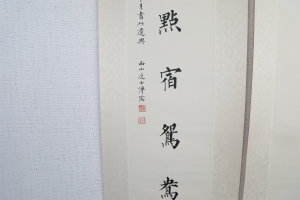 點宿鴛鴦
月書以遣興
西山逸士溥儒